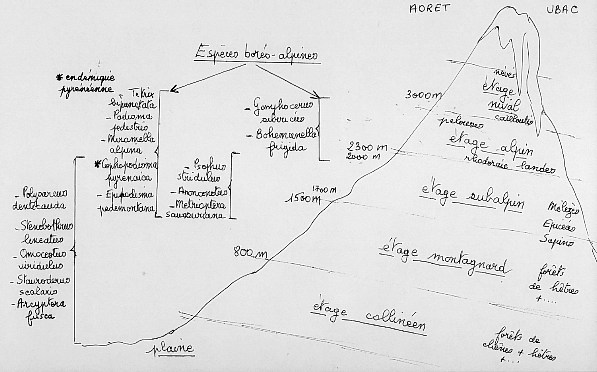 ADRET
UBAC
Espèces boréo-alpines
* endémique
pyrénéenne
Tetrix
bipunctata
- Podisma
pedestris
- Miramella
alpina
* Cophopodisma
pyrenaica
- Epipodisma
pedemontana
- Gomphocerus
sibiricus
- Bohemanella
frigida
- Isophya
stridulus
- Anonconotus
- Metrioptera
saussuriana
Polysarcus
denticauda
- Stenobothrus
lineatus
- Omocestus
viridulus
- Stauroderus
scalaris
- Arcyptera
fusca
neves
étage
nival
3000 m
cailloutis
pelouses
étage alpin
2300 m
2000 m
rhodoraie landes
1700 m
1500 m
étage subalpin
Mélèzes
Epicéas
Sapins
800 m
étage montagnard
forêts
de hêtres
+....
étage collinéen
forêts de
chênes + hêtres
+....
plaine